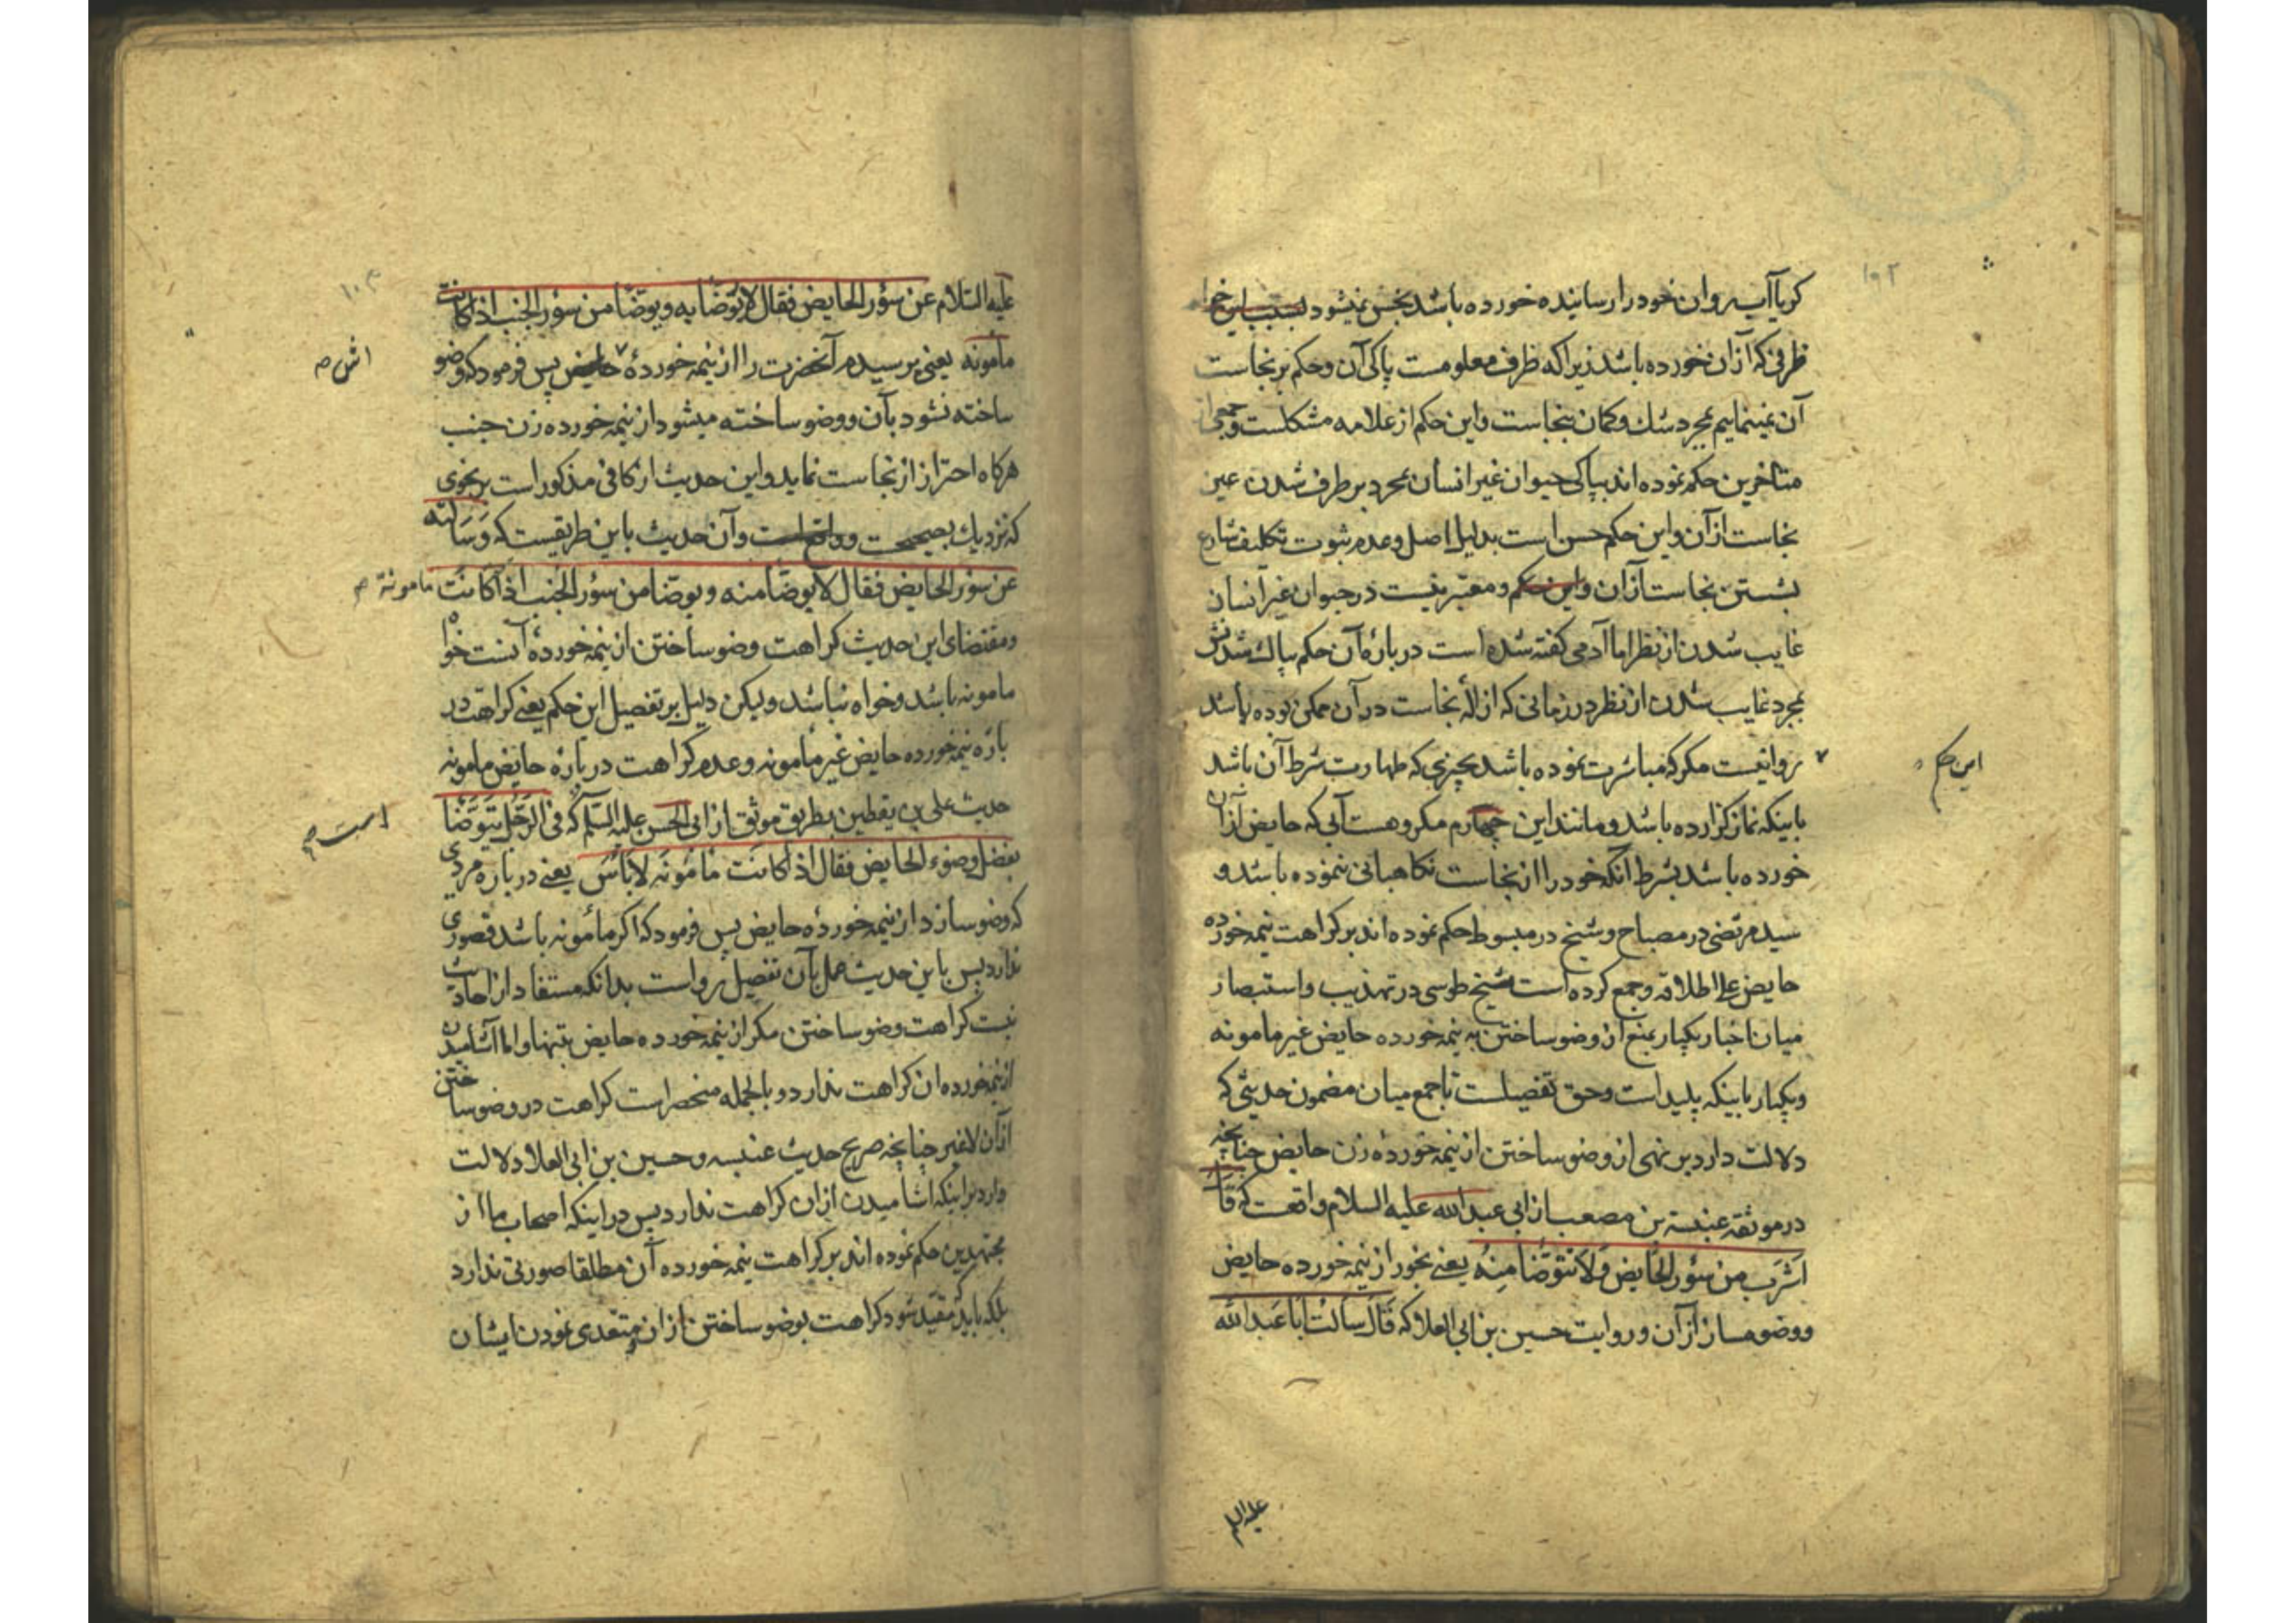 ۱۰۲
کر یا آب روان خود را رسانیده خورده باشد نجس نمیشود بسبب این خوا
ظرفی که از ان خورده باشد زیرا که ظرف معلومست پاکی آن و حکم بر نجاست
آن نمینماییم بمجرد شک و کمان بنجاست و این حکم از علامه مشکلست و جمعی از
متاخرین حکم نموده اند بپاکی حیوان غیر انسان بمجرد بر طرف شدن عین
نجاست از آن و این حکم حسن است بدلیل اصل و عدم ثبوت تکلیف شارع
بشستن نجاست از ان و این حکم و معتبر نیست در حیوان غیر انسان
غایب شدن از نظر اما آدمی کفته شده است در باره آن حکم پاک شدنش
بمجرد غایب شدن از نظر در زمانی که ازاله نجاست در آن ممکن بوده باشد
این حکم
روا نیست مکر که مباشرت نموده باشد بچیزی که طهارت شرط آن باشد
باینکه نماز کزارده باشد و مانند این چهارم مکروهست آبی که حایض از ان
خورده باشد بشرط آنکه خود را از نجاست نکاهبانی ننموده باشد و
سید مرتضی در مصباح و شیخ در مبسوط حکم نموده اند بر کراهت نیمه خورده
حایض علی اطلاقه و جمع کرده است شیخ طوسی در تهذیب و استبصار
میان اخبار یکبار بمنع از وضو ساختن به نیمه خورده حایض غیر مامونه
و یکبار باینکه پلید است و حق تفصیلست تا جمع میان مضمون حدیثی که
دلالت دارد بر نهی از وضو ساختن از نیمه خورده زن حایض چنانچه
در موثقه عنبسة بن مصعب از ابی عبد الله علیه السلام واقعست که قال
اشرب من سؤر الحایض ولا تتوضا منه یعنی بخور از نیمه خورده حایض
و وضو مساز از آن و روایت حسین بن ابی العلا که قال سالت ابا عبد الله
علیه السلم
۱۰۳
علیه السلام عن سؤر الحایض فقال لا توضا به و یوضا من سؤر الجنب اذا کانت
مأمونه یعنی پرسیدم آنحضرت را از نیمه خورده حایض پس فرمود که وضو
اش صح
ساخته نشود بآن و وضو ساخته میشود از نیمه خورده زن جنب
هرکاه احتراز از نجاست نماید و این حدیث از کافی مذکور است بر نحوی
که نزدیک بصیحست و واقع است و آن حدیث باین طریقیست که و سالته
عن سؤر الحایض فقال لا یوضا منه و یوضا من سؤر الجنب اذا کانت مامونة صح
و مقتضای این حدیث کراهت وضو ساختن از نیمه خورده آنست خواه
مامونه باشد و خواه نباشد و لیکن دلیل بر تفصیل این حکم یعنی کراهت در
باره نیمه خورده حایض غیر مامونه و عدم کراهت در باره حایض مامونه
است صح
حدیث علی بن یقطین بطریق موثق از ابی الحسن علیه السلم که فی الرجل یتوضا
بفضل وضوء الحایض فقال اذا کانت مامونه لا باس یعنی در باره مردی
که وضو سازد از نیمه خورده حایض پس فرمود که اکر مأمونه باشد قصوری
ندارد پس باین حدیث عمل بآن تفصیل رواست بدانکه مستفاد از احادیث
نیست کراهت وضو ساختن مکر از نیمه خورده حایض بتنها و اما آشامیدن
از نیمه خورده ان کراهت ندارد و بالجمله منحصر است کراهت در وضو ساختن
از آن لا غیر چنانچه صریح حدیث عنبسه و حسین بن ابی العلا دلالت
دارد بر اینکه اشامیدن از ان کراهت ندارد پس در اینکه اصحاب ما از
مجتهدین حکم نموده اند بر کراهت نیمه خورده آن مطلقا صورتی ندارد
بلکه باید که مقید شود کراهت بوضو ساختن از ان و متعدی نمودن ایشان